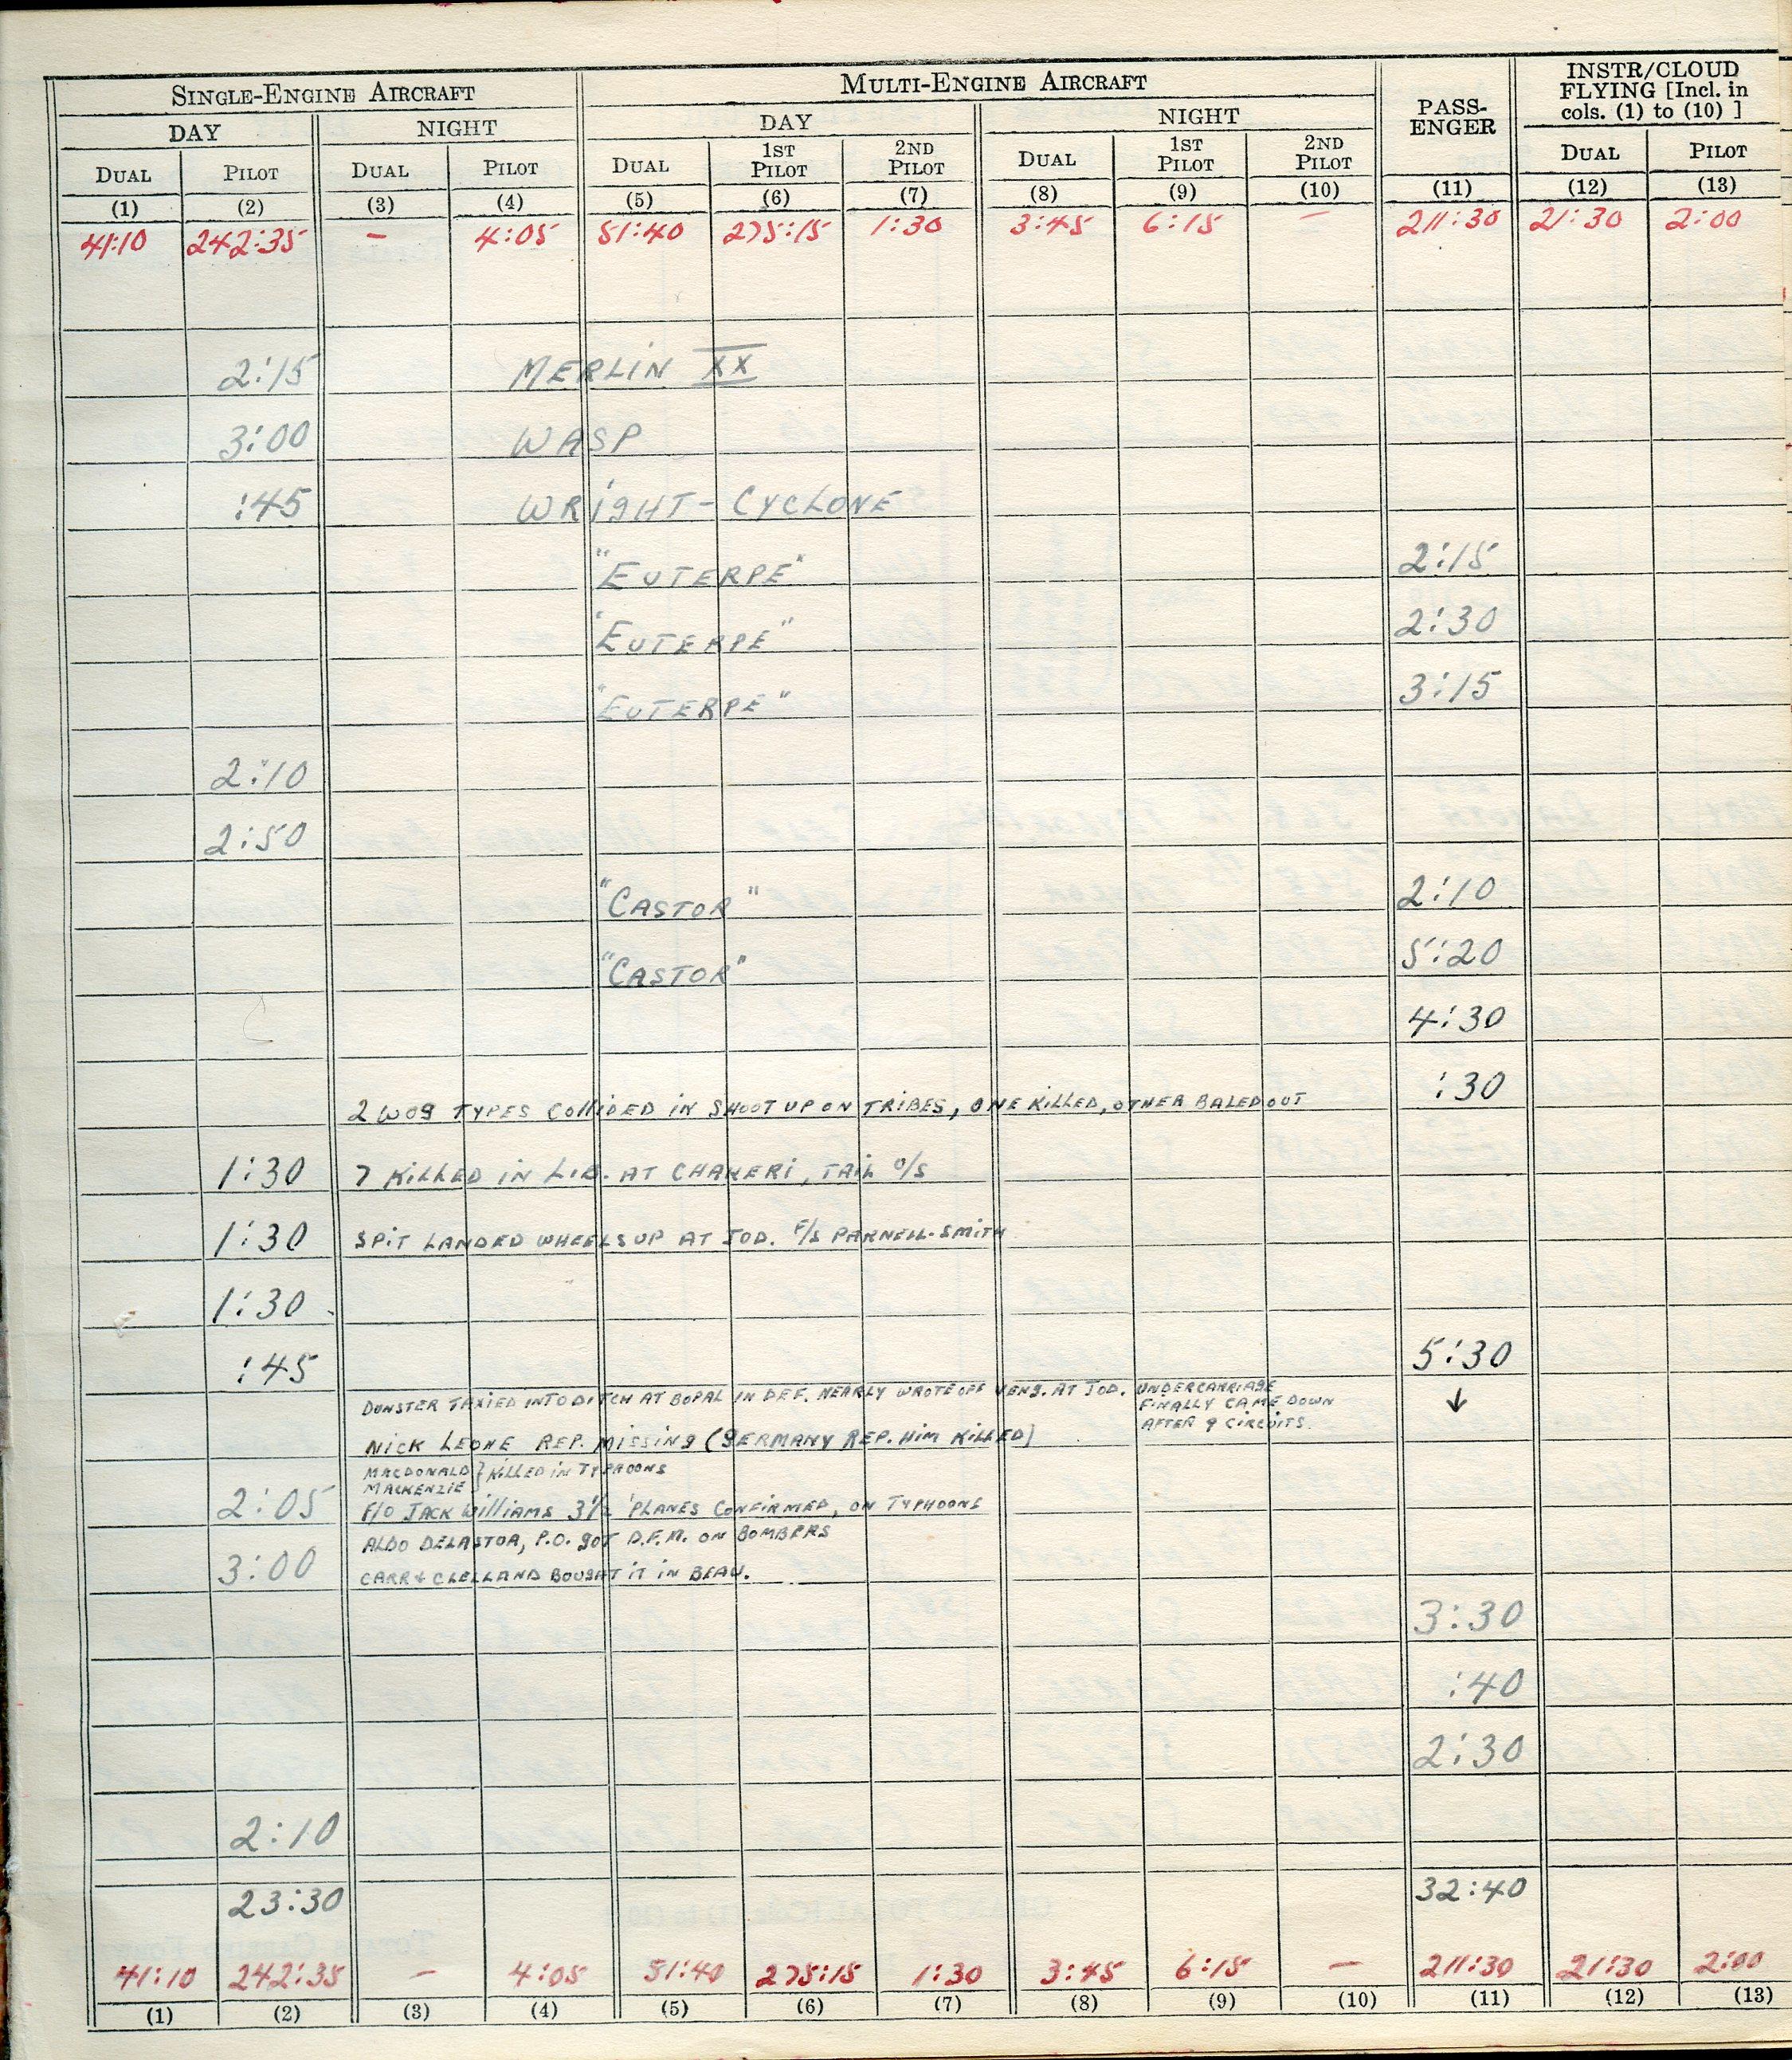 SINGLE-ENGINE AIRCRAFT MULTI-ENGINE AIRCRAFT PASS-ENGER INSTR/CLOUD FLYING [Incl. in cols. (1) to (10) ]
DAY NIGHT DAY NIGHT
DUAL PILOT DUAL PILOT DUAL 1ST PILOT 2ND PILOT DUAL 1ST PILOT 2ND PILOT DUAL PILOT
(1) (2) (3) (4) (5) (6) (7) (8) (9) (10) (11) (12) (13)
41:10 242:35 – 4:05 51:40 275:15 1:30 3:45 6:15 – 211:30 21:30 2:00
2:15 MERLIN XX
3:00 WASP
:45 WRIGHT-CYCLONE
"EUTERPE" 2:15
"EUTERPE" 2:30
"EUTERPE" 3:15
2:10
2:50
"CASTOR" 2:10
"CASTOR" 5:20
4:30
:30
2 WOG TYPES COLLIDED IN SHOOT UP ON TRIBES, ONE KILLED, OTHER BALED OUT
1:30 7 KILLED IN LIB. AT CHAKERI, TAIL O/S
1:30 SPIT LANDED WHEELS UP AT JOD. F/S PARNELL-SMITH
1:30
:45 5:30
DUNSTER TAXIED INTO DITCH AT BOPAL IN DEF. NEARLY WROTE OFF VENG. AT JOD. UNDERCARRIAGE
FINALLY CAME DOWN ↓
AFTER 9 CIRCUITS.
NICK LEONE REP. MISSING (GERMANY REP. HIM KILLED)
MACDONALD } KILLED IN TYPHOONS
MACKENZIE
2:05 F/O JACK WILLIAMS 3½ 'PLANES CONFIRMED, ON TYPHOONS
ALDO DELASTOA, P.O. GOT D.F.M. ON BOMBERS
3:00 CARR & CLELLAND BOUGHT IT IN BEAU.
3:30
:40
2:30
2:10
23:30 32:40
41:10 242:35 – 4:05 51:40 275:15 1:30 3:45 6:15 – 211:30 21:30 2:00
(1) (2) (3) (4) (5) (6) (7) (8) (9) (10) (11) (12) (13)